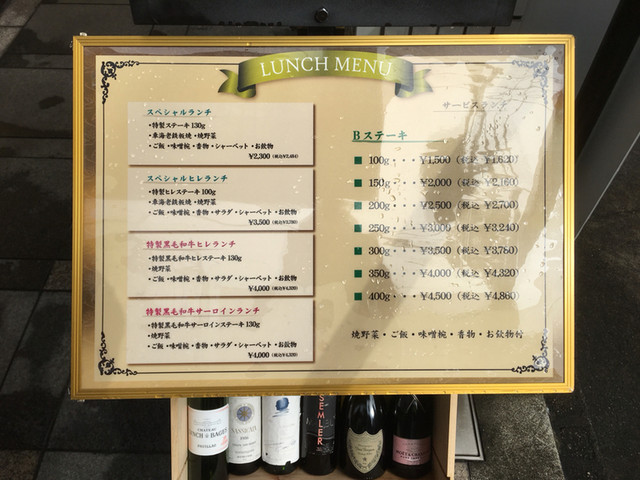 LUNCH MENU
スペシャルランチ
・特製ステーキ130g
・車海老鉄板焼・焼野菜
・ご飯・味噌椀・香物・シャーベット・お飲物
¥2,300（税込¥2,484）
スペシャルヒレランチ
・特製ヒレステーキ100g
・車海老鉄板焼・焼野菜
・ご飯・味噌椀・香物・サラダ・シャーベット・お飲物
¥3,500（税込¥3,780）
特製黒毛和牛ヒレランチ
・特製黒毛和牛ヒレステーキ130g
・焼野菜
・ご飯・味噌椀・香物・サラダ・シャーベット・お飲物
¥4,000（税込¥4,320）
特製黒毛和牛サーロインランチ
・特製黒毛和牛サーロインステーキ130g
・焼野菜
・ご飯・味噌椀・香物・サラダ・シャーベット・お飲物
¥4,000（税込¥4,320）
サービスランチ
Bステーキ
■ 100g・・・¥1,500（税込 ¥1,620）
■ 150g・・・¥2,000（税込 ¥2,160）
■ 200g・・・¥2,500（税込 ¥2,700）
■ 250g・・・¥3,000（税込 ¥3,240）
■ 300g・・・¥3,500（税込 ¥3,780）
■ 350g・・・¥4,000（税込 ¥4,320）
■ 400g・・・¥4,500（税込 ¥4,860）
焼野菜・ご飯・味噌椀・香物・お飲物付
CHATEAU
LYNCH BAGES
SEMLER